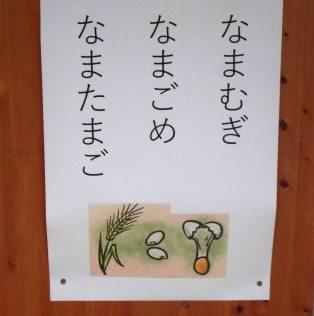 なまむぎ
なまごめ
なまたまご